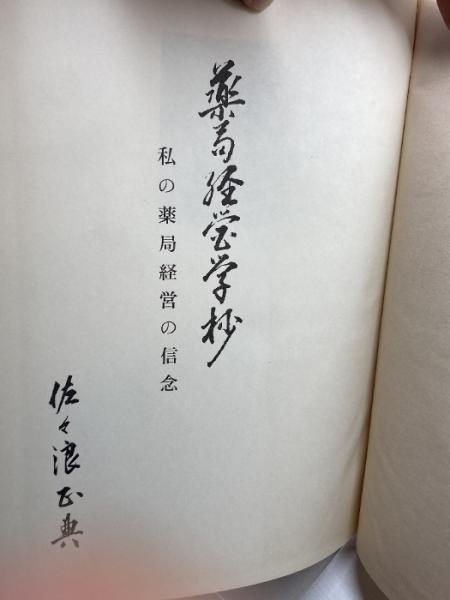 薬局経営学抄
私の薬局経営の信念
佐々浪正典